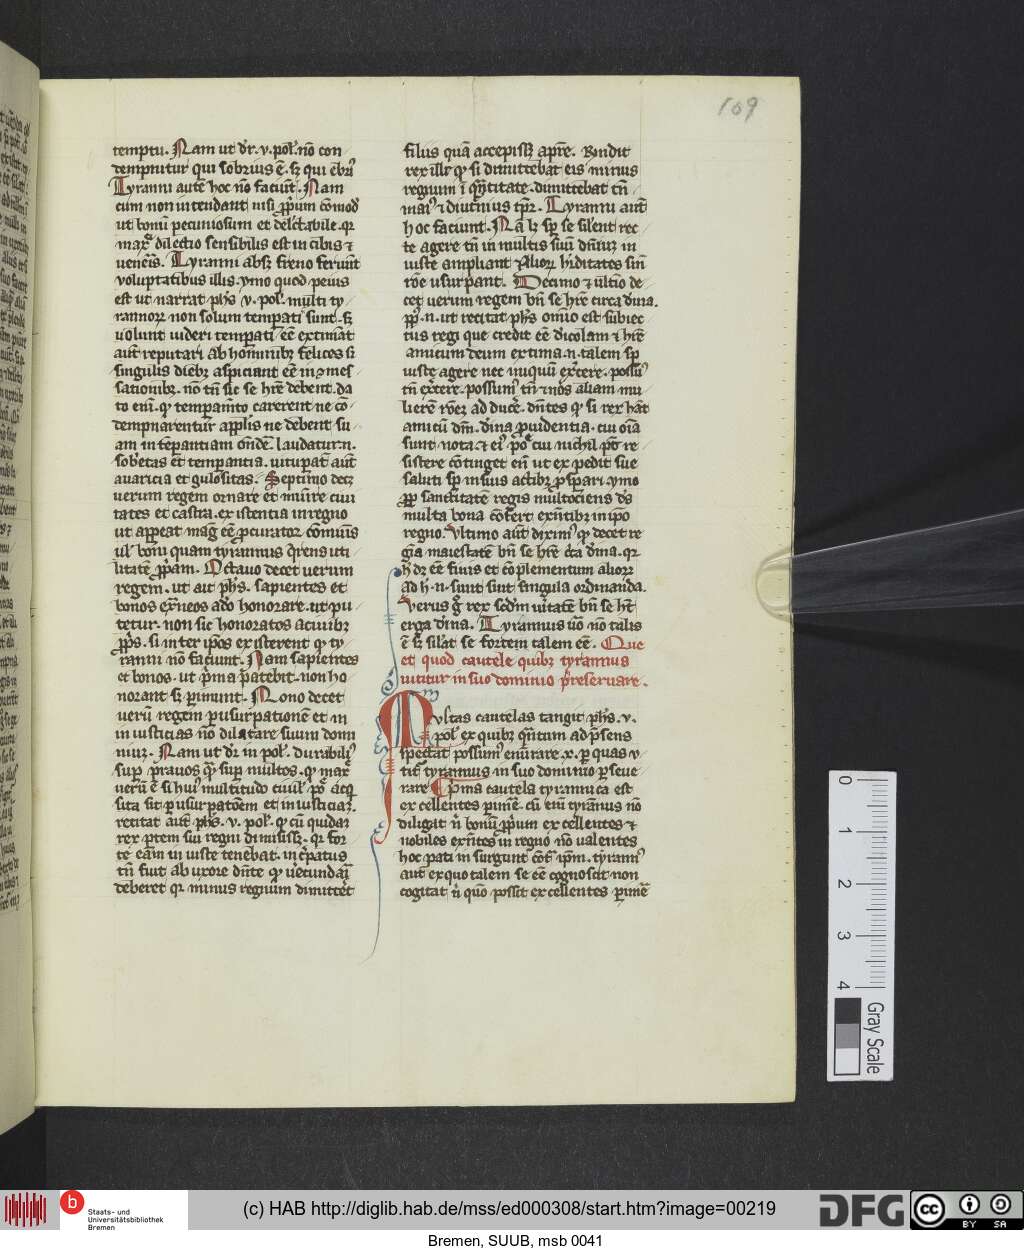 109
temptu. Nam ut dr. v. pol. nō con
tempnitur qui sobrius ē. sz qui ebri9
Tyranni autē hoc nō faciūt. Nam
cum non intendant nisi ꝓprium cōmod
ut bonū pecuniosum et delectabile. qr
max dilectio sensibilis est in cibis et
veneris. Tyranni absqz freno feruūt
voluptatibus illis. ymo quod peius
est ut narrat phs v. pol. multi ty
rannorꝝ non solum tempati sunt. sz
volunt videri tempati eē extimāt
aut reputari ab hominibz felices si
singulis diebz aspiciant eē in
sationibz. nō tn sic se hrē debent. da
to eni. qz tempamēto carerent ne cō
tempnarentur a pplis ne debent su
am intēperantiam ondē. laudatur. n.
sobrietas et temperantia. vitupat aut
avaricia et gulositas. Septimo decz
verum regem ornare et munire civi
tates et castra. existentia in regno
ut appareat mag eē pcurator cōmunis
vl boni quam tyrannus querens uti
litatē ppriam. Octavo decet verum
regem. ut ait phs. sapientes et
bonos extneos adō honorare. ut pu
tetur. non sic honoratos a civibz
pprijs. si inter ipos existerent qz ty
ranni nō faciunt. Nam sapientes
et bonos. ut prima patebit. non ho
norant sz perimunt. Nono decet
verū regem p usurpationē et in
iniusticias nō dilatare suum domi
nium. Nam ut dr in pol. durabili9
sup pravos qm sup multos. qz max
verū ē si hui9 multitudo civil po acq
sita sit p usurpatōem et iniusticiaz.
recitat aut phs. v. pol. qz cū quidam
rex prem sui regni dimisissz. qr for
te eam iniuste tenebat. incpatus
tn fuit ab uxore dnte qz verecundari
deberet qr minus regnum dimitteret
filius quā accepissz a pre. Rondit
rex ille qz si dimittebat eis minus
regnum i qntitate. dimittebat tn
mai9 et diuturnius tpre. Tyranni aut
hoc faciunt. Nā lz sp se silent rec
te agere tn in multis suū dniuz in
iuste ampliant et aliorꝝ hiditates sine
rōe usurpant. Decimo et ultio de
cet verum regem bn se hre circa divina.
pp. n. ut recitat phs omnio est subiec
tus regi que credit eē dicolam et hrē
amicum deum extima. n. talem sp
iuste agere nec iniquū exercere. possū
tn
lierē ad ducē. dntes qz si rex hāt
amicū dm. divina providentia. cui oia
sunt nota. et ei9 po cui nichil pot re
sistere cōtinget ei ut expedit sue
saluti sp in suis actibz psperari ymo
pp sanctitatē regis multociens ds
multa bona cōfert existibz in ipo
regno. Vltimo aut diximus qz decet re
giā maiestatē bn se hrē circa divina. qr
h dz eē finis et cōplementum aliorꝝ
ad h. n. sunt sint singula ordinanda.
Verus g rex scdm vitatē bn se ht
erga divina. Tyrannus vo nō talis
ē sz silat se fortem talem eē. Que
et quod cautele quibz tyrannus
utitur in suo dominio preservare.
Multas cautelas tangit phs. v.
pol ex quibz qntum ad psens
spectat possum9 enūrare. x. p quas v
tit tyrannus in suo dominio p seve
rare Prima cautela tyrannica est
excellentes perimē. cū enim tyrannus nō
diligat n bonū pprium excellentes et
nobiles exntes in regno nō valentes
hoc pati insurgunt cont ipm. tyrann9
aut ex quo talem se eē cognoscit non
cogitat n quō possit excellentes perimē
0
1
2
3
4
Gray Scale
b
Staats- und
Universitätsbibliothek
Bremen
(c) HAB http://diglib.hab.de/mss/ed000308/start.htm?image=00219
DFG
cc
BY SA
Bremen, SUUB, msb 0041